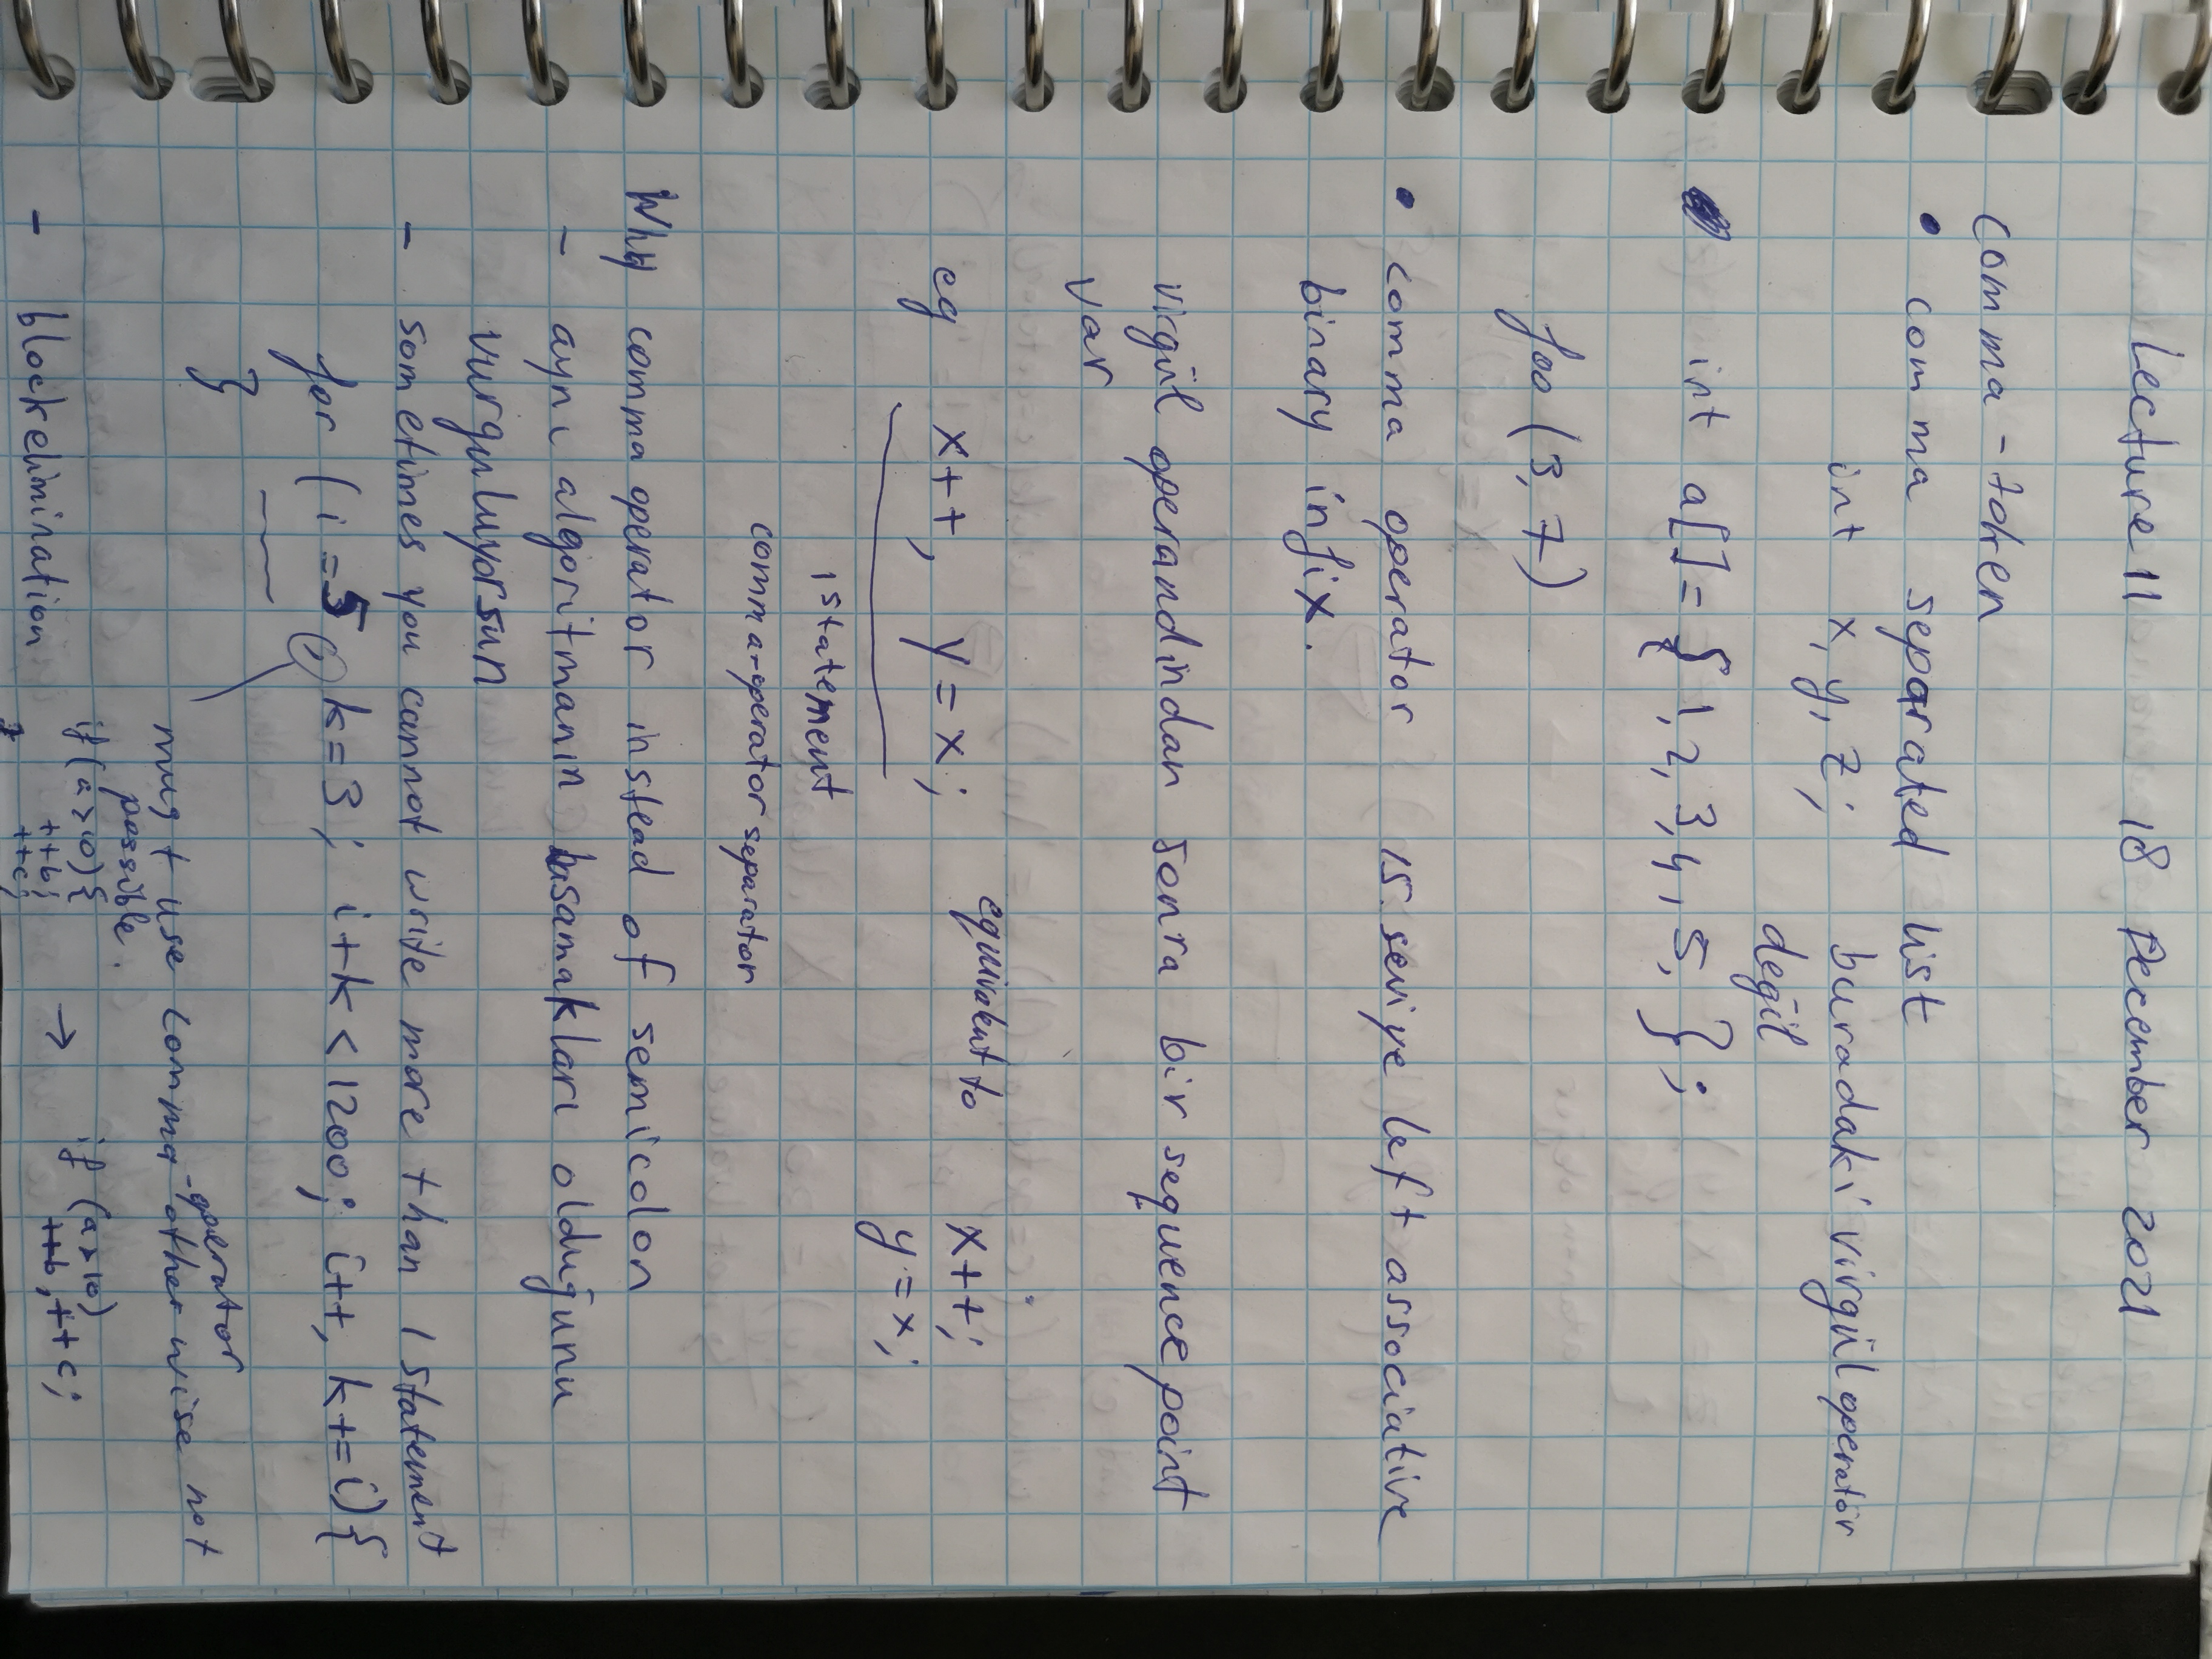 Lecture 11 18 December 2021
comma - token
• comma separated list
int x, y, z; buradaki virgül operatör
değil
int a[] = { 1, 2, 3, 4, 5, };
foo (3, 7)
• comma operator 15. seviye left associative
binary infix.
virgül operandından sonra bir sequence point
var
eg x++, y = x; equivalent to x++;
y = x;
1 statement
comma-operator separator
Why comma operator instead of semicolon
- aynı algoritmanın basamakları olduğunu
vurguluyorsun
- sometimes you cannot write more than 1 statement
for (i = 5, k = 3; i + k < 1200; i++, k += i) {
}
must use comma-operator otherwise not
possible.
if (a > 10) { → if (a > 10)
++b; ++b, ++c;
- block elimination ++c;
}